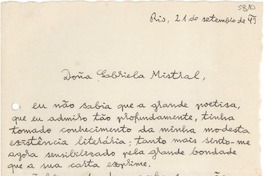 5810
Rio, 21 de setembro de 43
Doña Gabriela Mistral,
eu não sabia que a grande poetisa,
que eu admiro tão profundamente, tinha
tomado conhecimento da minha modesta
existência literária; tanto mais sento-me
agora sensibilizado pela grande bondade
que a sua carta exprime.